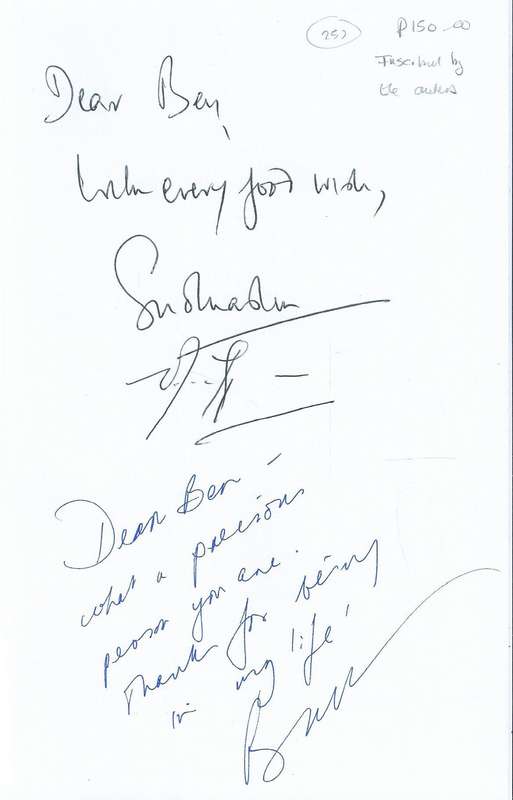 257
P150-00
Inscribed by
the authors
Dear Ben,
With every good wish,
Dear Ben -
what a precious
person you are.
Thanks for being
in my life!